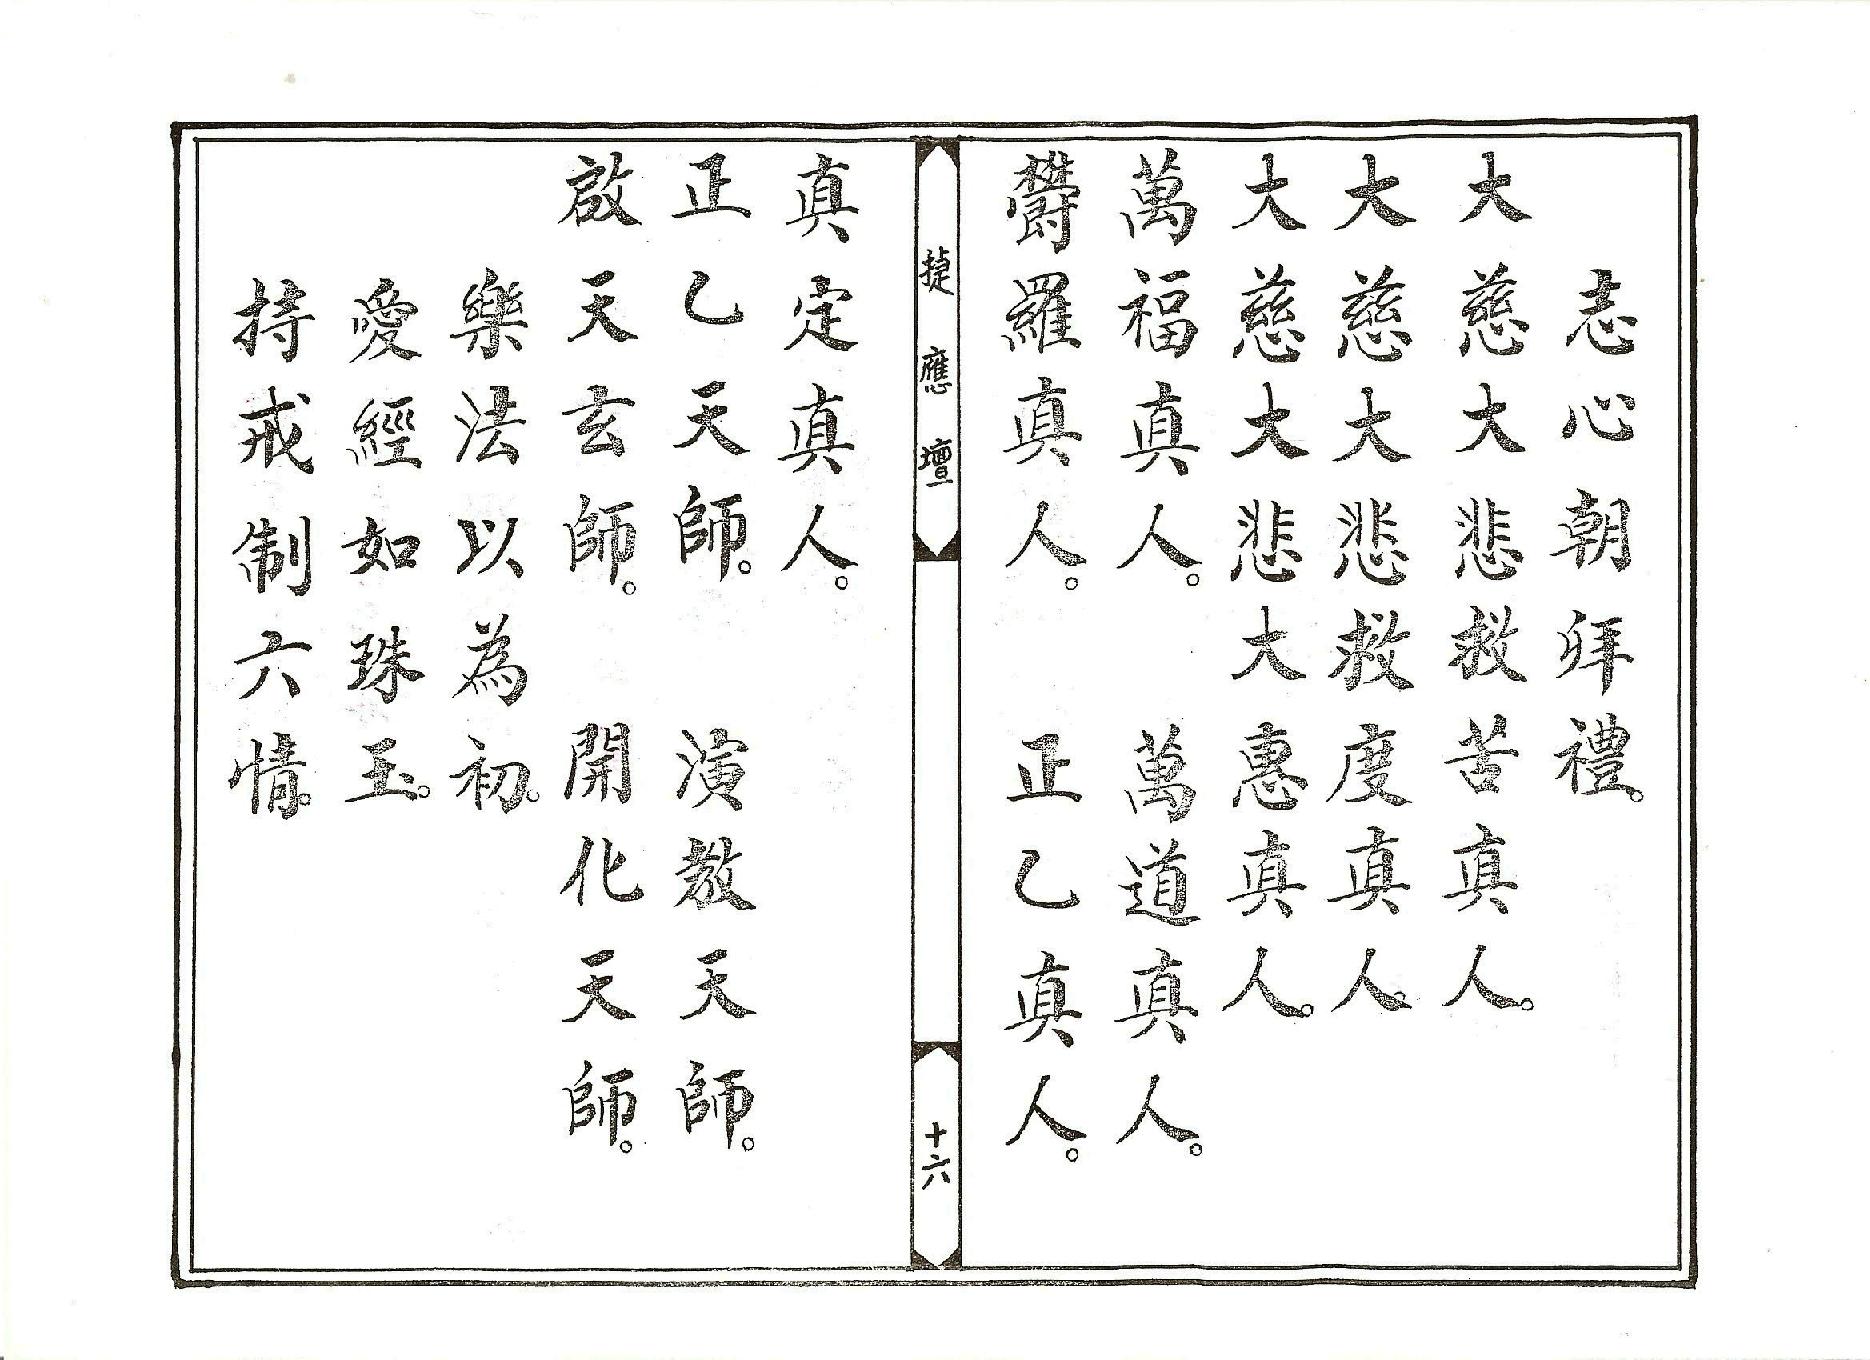 志心朝拜禮。
大慈大悲救苦真人。
大慈大悲救度真人。
大慈大悲大惠真人。
萬福真人。　萬道真人。
欝羅真人。　正乙真人。
捷應壇
十六
真定真人。
正乙天師。　演教天師。
啟天玄師。　開化天師。
樂法以為初。
愛經如珠玉。
持戒制六情。